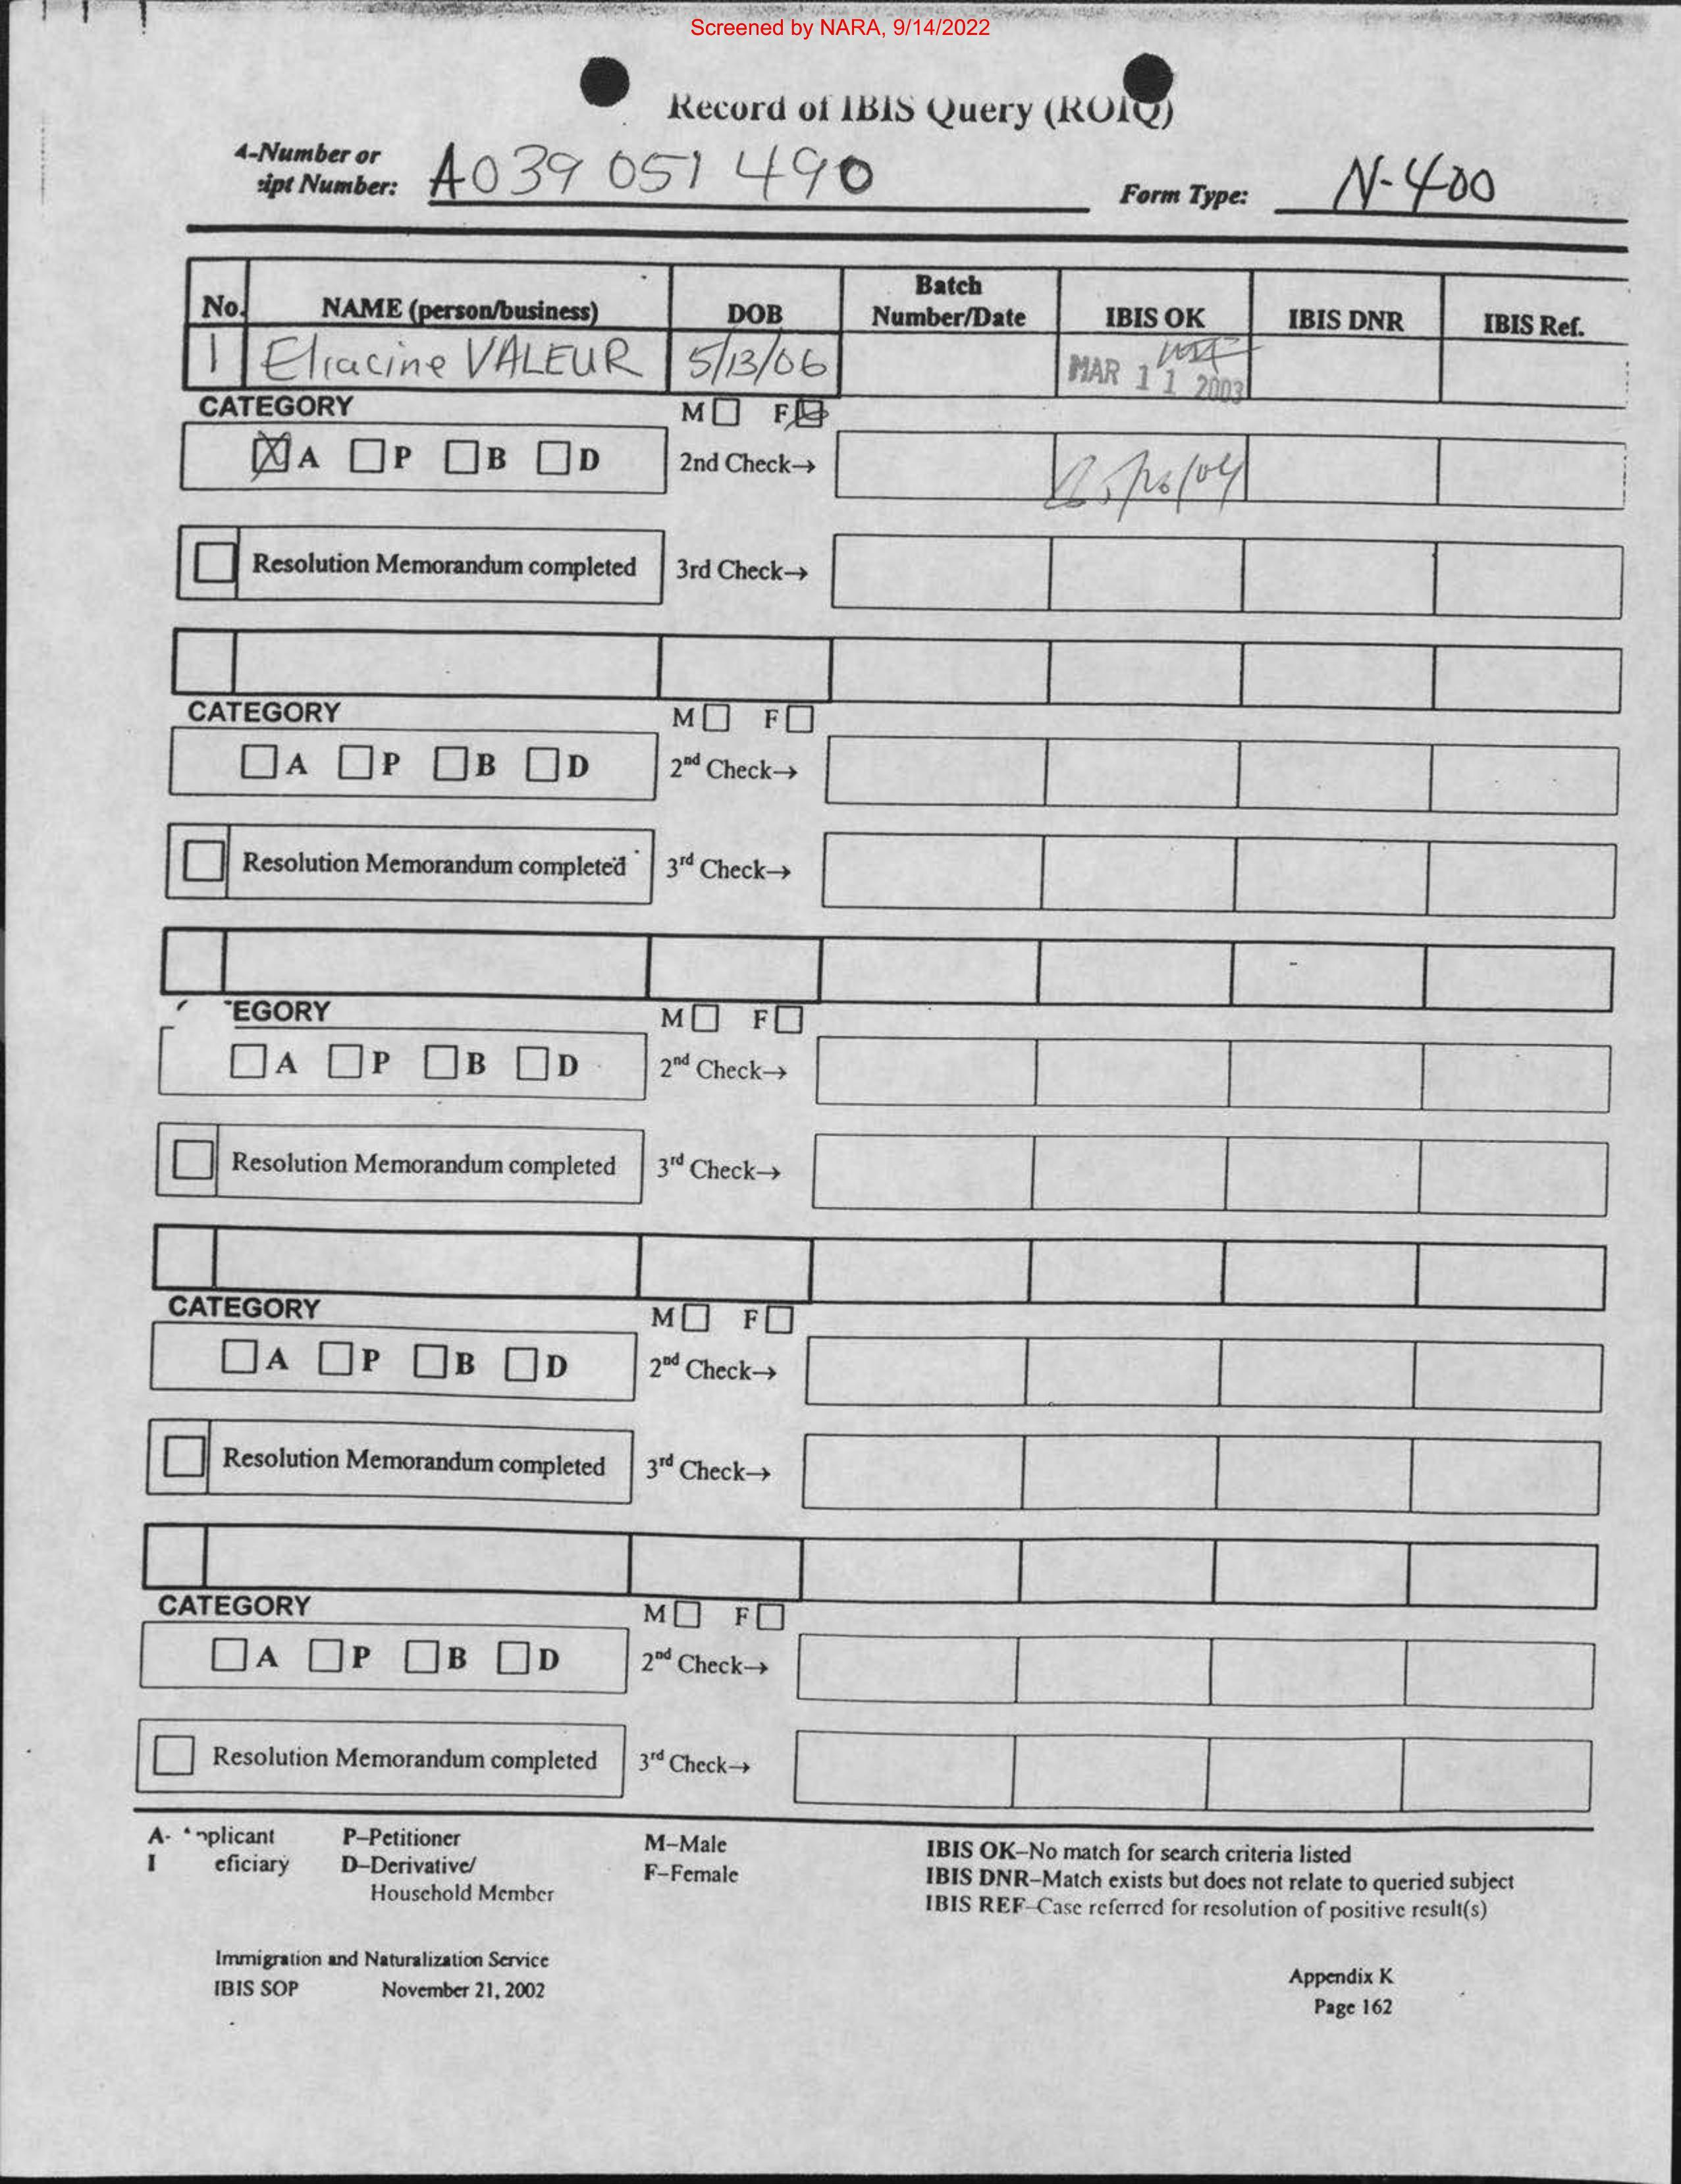 Screened by NARA, 9/14/2022
Record of IBIS Query (ROIQ)
A-Number or
ipt Number: A039 051 490 Form Type: N-400
No. NAME (person/business) DOB Batch Number/Date IBIS OK IBIS DNR IBIS Ref.
1 Eliacine VALEUR 5/13/06 MAR 11 2003
CATEGORY M F
A P B D 2nd Check→
Resolution Memorandum completed 3rd Check→
CATEGORY M F
A P B D 2nd Check→
Resolution Memorandum completed 3rd Check→
EGORY M F
A P B D 2nd Check→
Resolution Memorandum completed 3rd Check→
CATEGORY M F
A P B D 2nd Check→
Resolution Memorandum completed 3rd Check→
CATEGORY M F
A P B D 2nd Check→
Resolution Memorandum completed 3rd Check→
A- pplicant P–Petitioner M–Male IBIS OK–No match for search criteria listed
eficiary D–Derivative/ F–Female IBIS DNR–Match exists but does not relate to queried subject
Household Member IBIS REF–Case referred for resolution of positive result(s)
Immigration and Naturalization Service
IBIS SOP November 21, 2002 Appendix K
Page 162